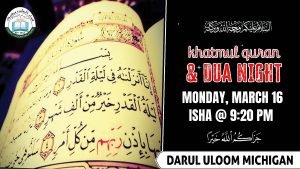 السلام عليكم ورحمة الله وبركاته
khatmul quran
& DUA NIGHT
MONDAY, MARCH 16
ISHA @ 9:20 PM
جزاكم الله خيرا
DARUL ULOOM MICHIGAN
أَنزَلْنَاهُ فِي لَيْلَةِ الْقَدْرِ
لَيْلَةُ الْقَدْرِ خَيْرٌ مِّنْ أَلْفِ شَهْرٍ
بِإِذْنِ رَبِّهِم مِّن كُلِّ أَمْرٍ